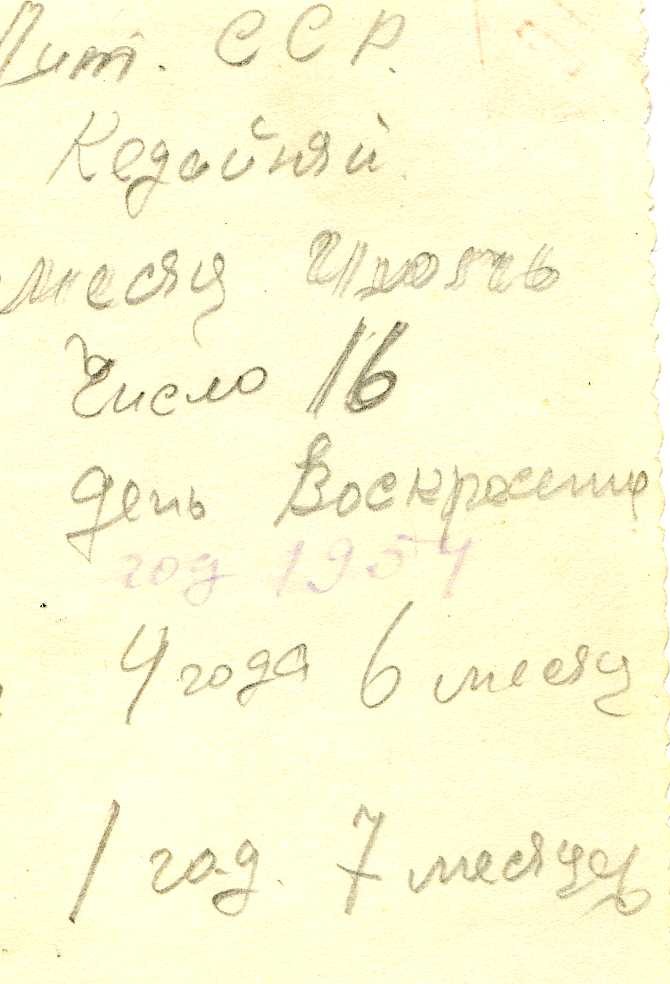 Лит. ССР.
Кедайняй.
месяц Июнь
Число 16
день Воскресение
год 1957
4 года 6 месяц
1 год. 7 месяцев